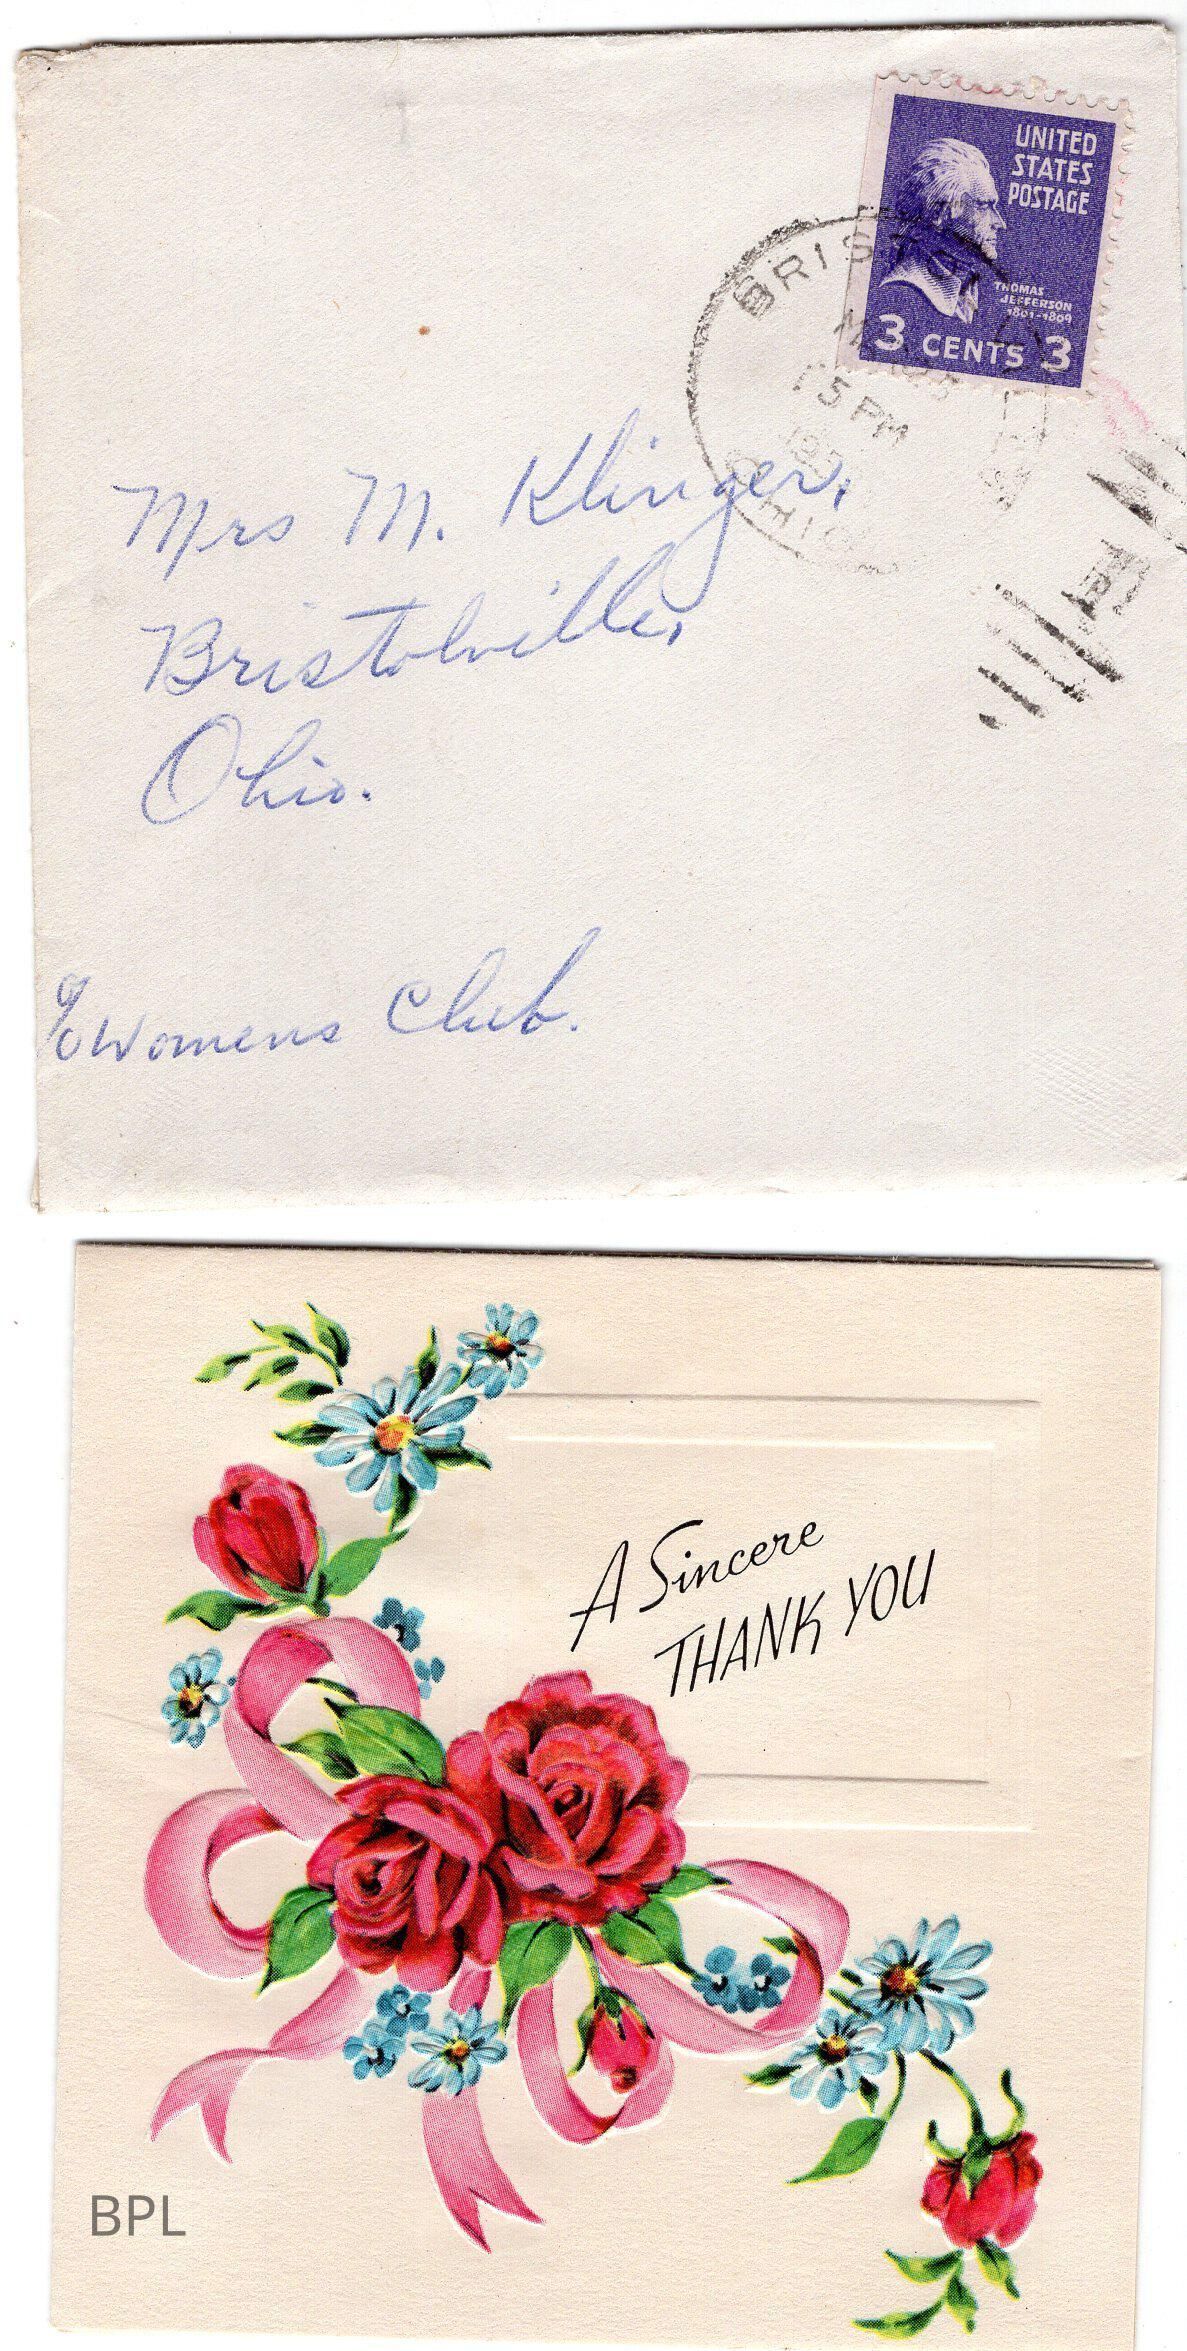 UNITED
STATES
POSTAGE
THOMAS
JEFFERSON
1801-1809
3 CENTS 3
BRISTOL
5 PM
OHIO
Mrs M. Klinger,
Bristolville,
Ohio.
c/o Womens Club.
A Sincere
THANK YOU
BPL